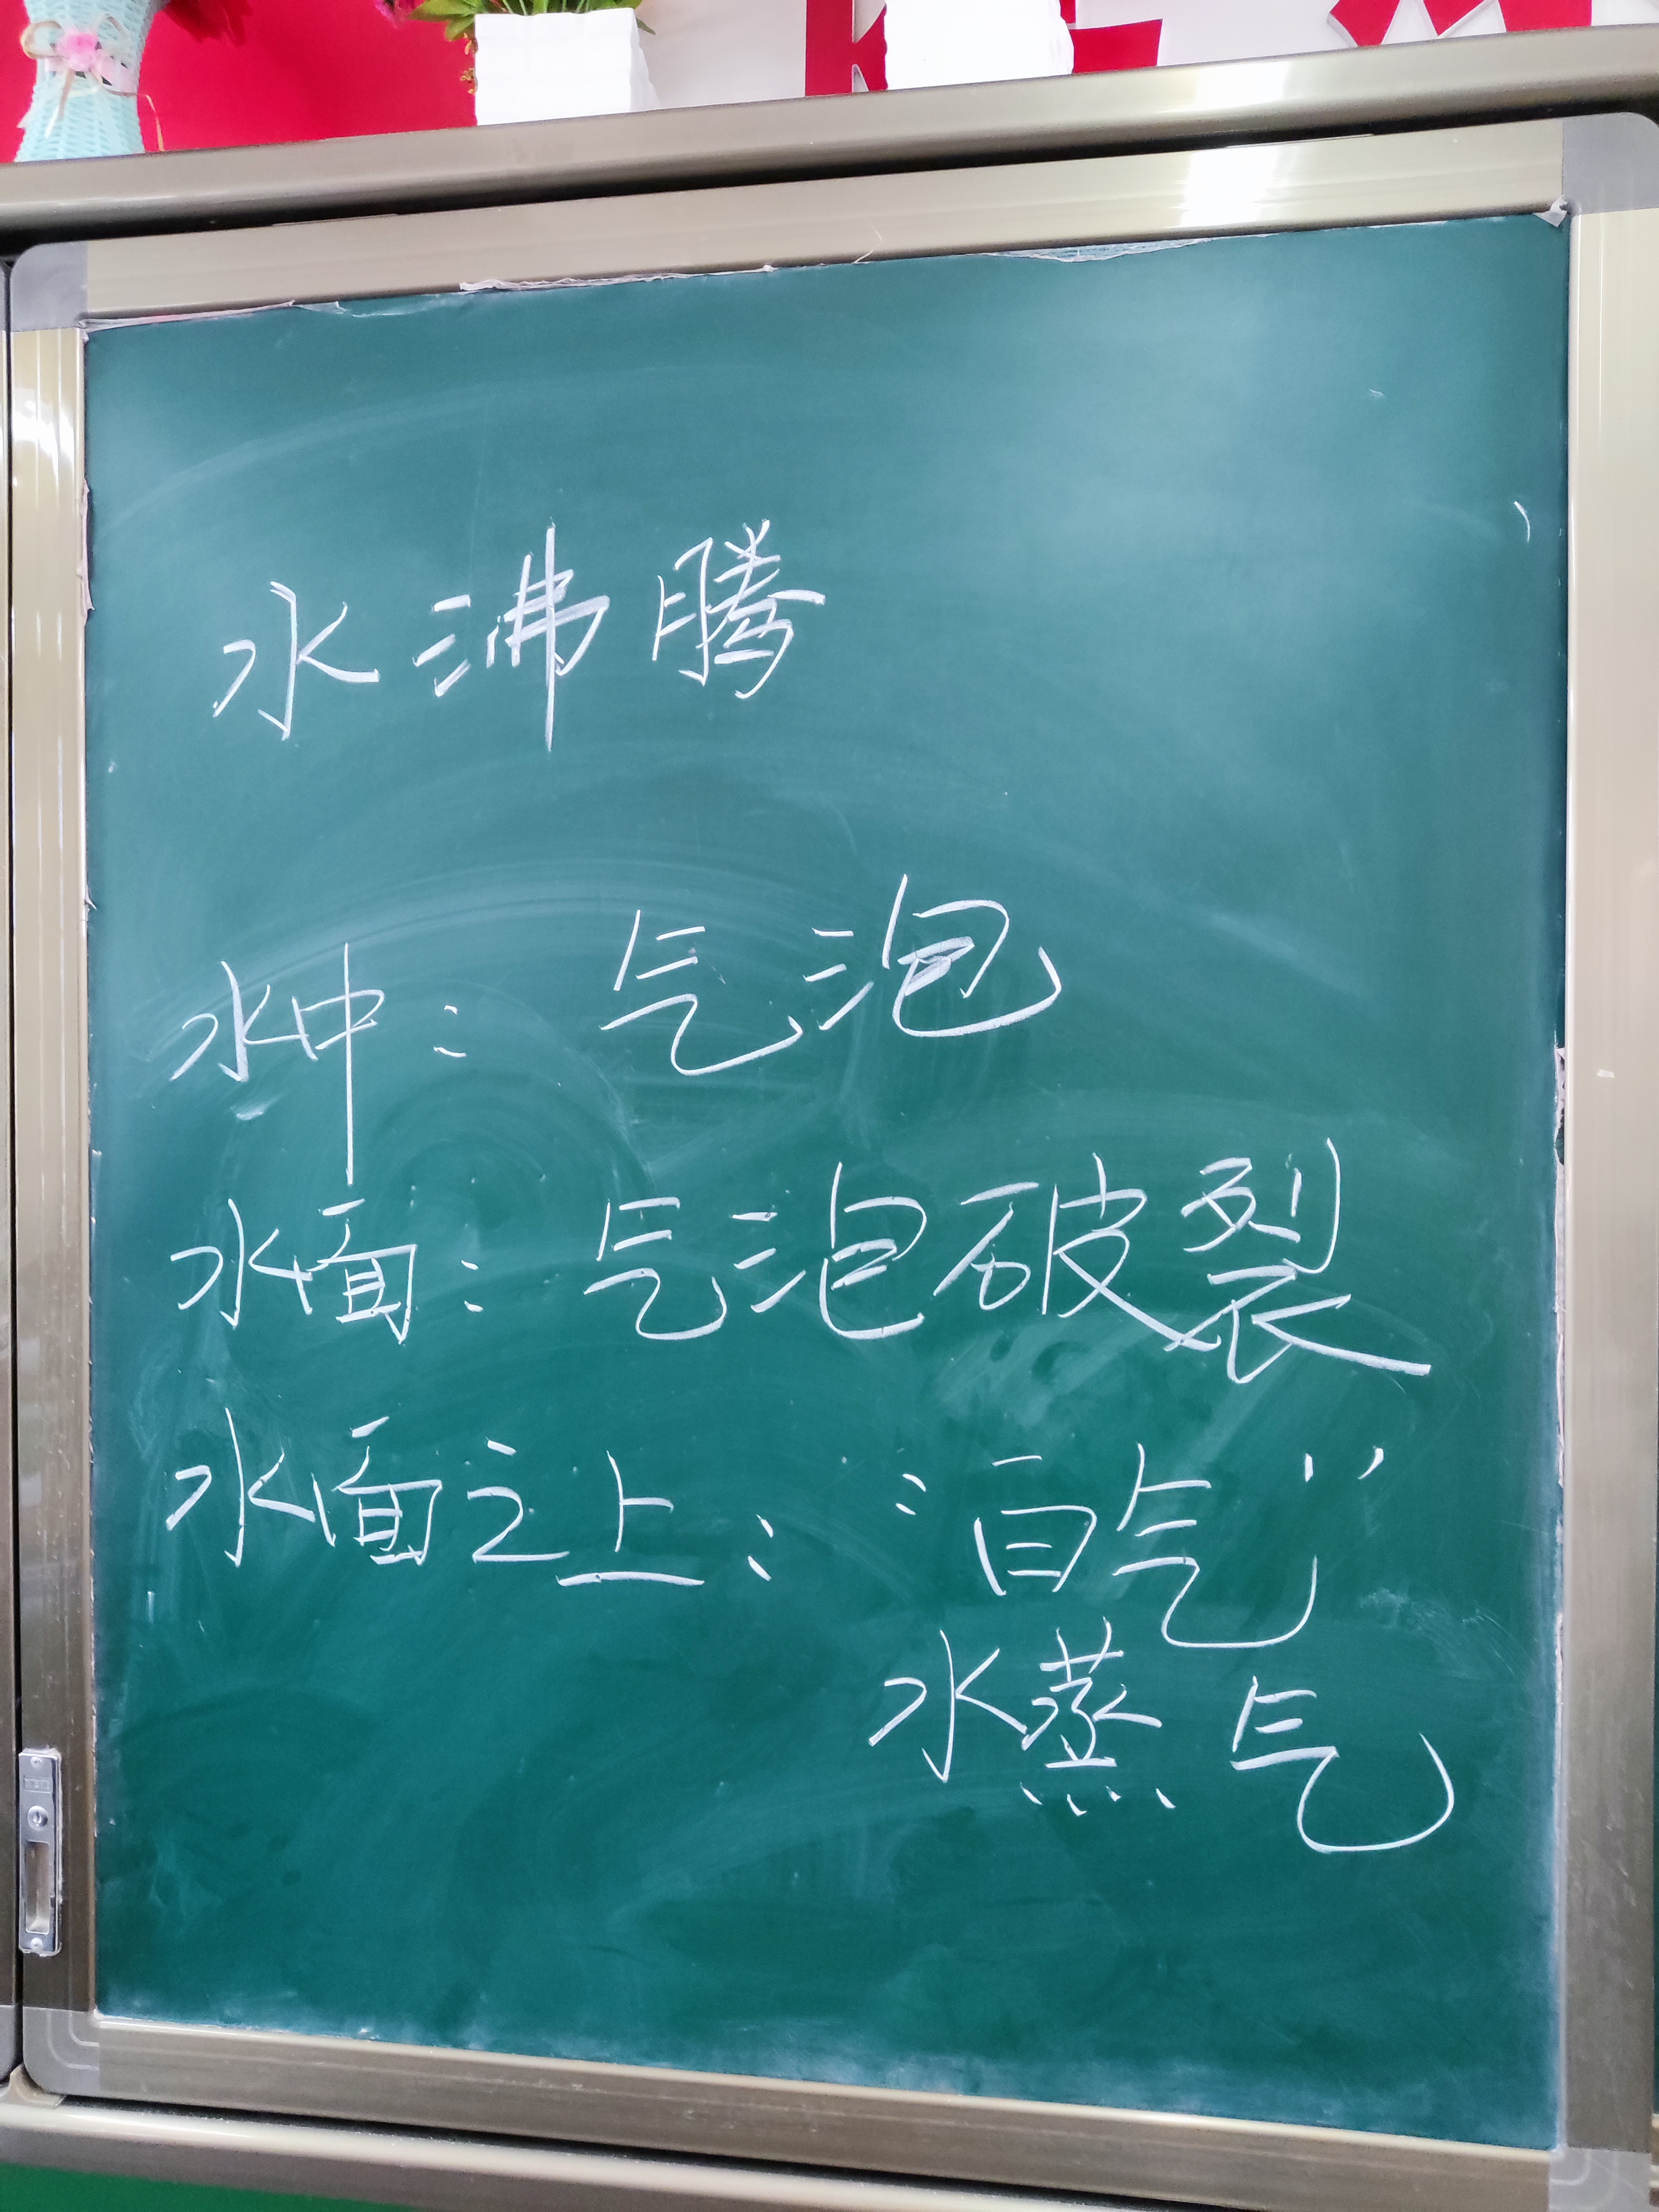 水沸腾
水中：气泡
水面：气泡破裂
水面之上：“白气”
水蒸气